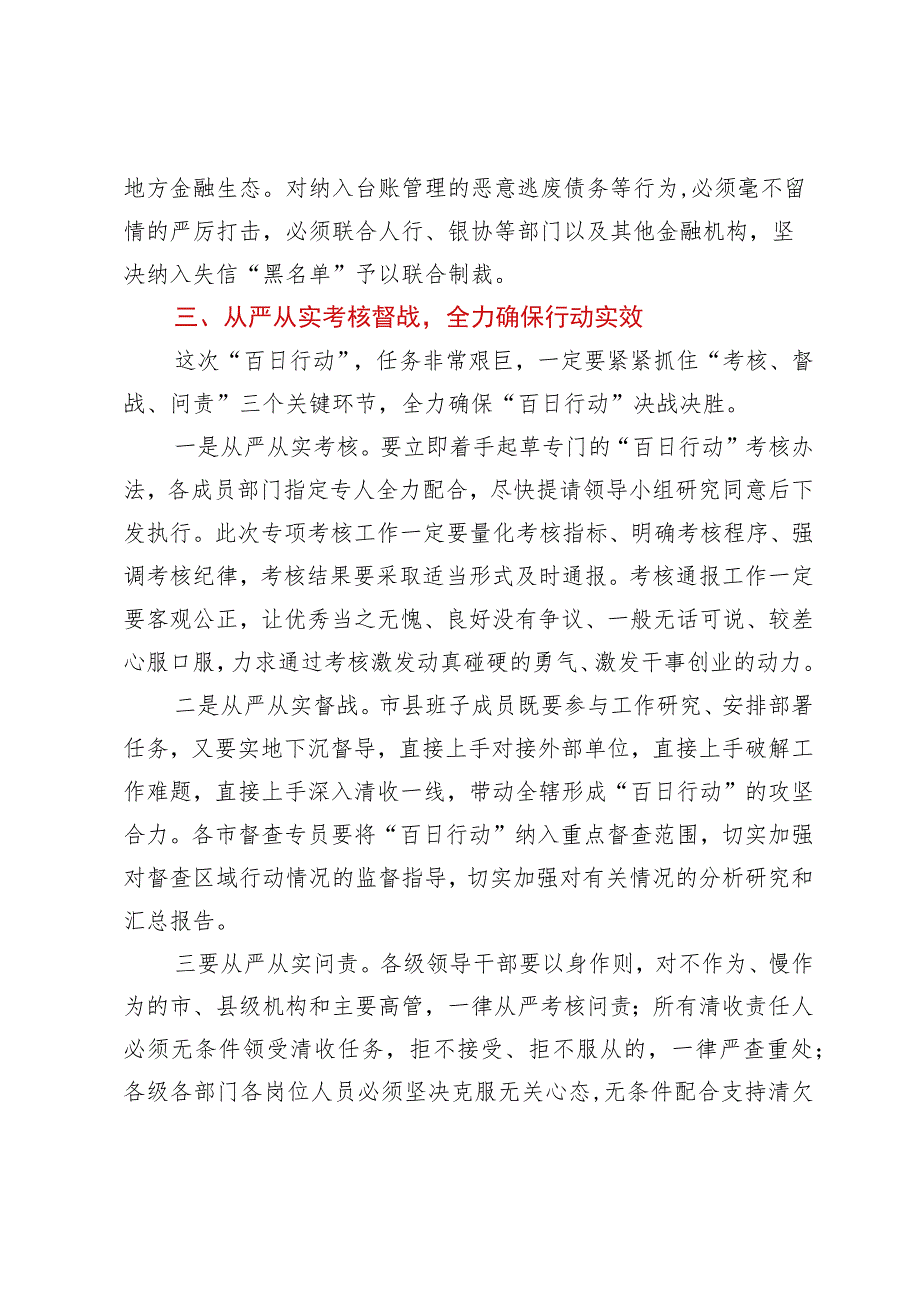 地方金融生态。对纳入台账管理的恶意逃废债务等行为,必须毫不留
情的严厉打击，必须联合人行、银协等部门以及其他金融机构，坚
决纳入失信“黑名单”予以联合制裁。
三、从严从实考核督战，全力确保行动实效
这次“百日行动”，任务非常艰巨，一定要紧紧抓住“考核、督
战、问责”三个关键环节，全力确保“百日行动”决战决胜。
一是从严从实考核。要立即着手起草专门的“百日行动”考核办
法，各成员部门指定专人全力配合，尽快提请领导小组研究同意后下
发执行。此次专项考核工作一定要量化考核指标、明确考核程序、强
调考核纪律，考核结果要采取适当形式及时通报。考核通报工作一定
要客观公正，让优秀当之无愧、良好没有争议、一般无话可说、较差
心服口服，力求通过考核激发动真碰硬的勇气、激发干事创业的动力。
二是从严从实督战。市县班子成员既要参与工作研究、安排部署
任务，又要实地下沉督导，直接上手对接外部单位，直接上手破解工
作难题，直接上手深入清收一线，带动全辖形成“百日行动”的攻坚
合力。各市督查专员要将“百日行动”纳入重点督查范围，切实加强
对督查区域行动情况的监督指导，切实加强对有关情况的分析研究和
汇总报告。
三要从严从实问责。各级领导干部要以身作则，对不作为、慢作
为的市、县级机构和主要高管，一律从严考核问责；所有清收责任人
必须无条件领受清收任务，拒不接受、拒不服从的，一律严查重处；
各级各部门各岗位人员必须坚决克服无关心态,无条件配合支持清欠